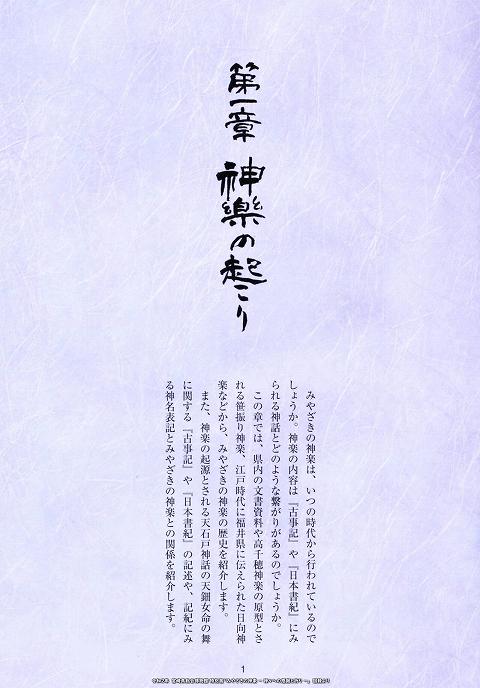 第一章 神樂の起こり
みやざきの神楽は、いつの時代から行われているので
しょうか。神楽の内容は『古事記』や『日本書紀』にみ
られる神話とどのような繋がりがあるのでしょうか。
この章では、県内の文書資料や高千穂神楽の原型とさ
れる笹振り神楽、江戸時代に福井県に伝えられた日向神
楽などから、みやざきの神楽の歴史を紹介します。
また、神楽の起源とされる天石戸神話の天鈿女命の舞
に関する『古事記』や『日本書紀』の記述や、記紀にみ
る神名表記とみやざきの神楽との関係を紹介します。
1